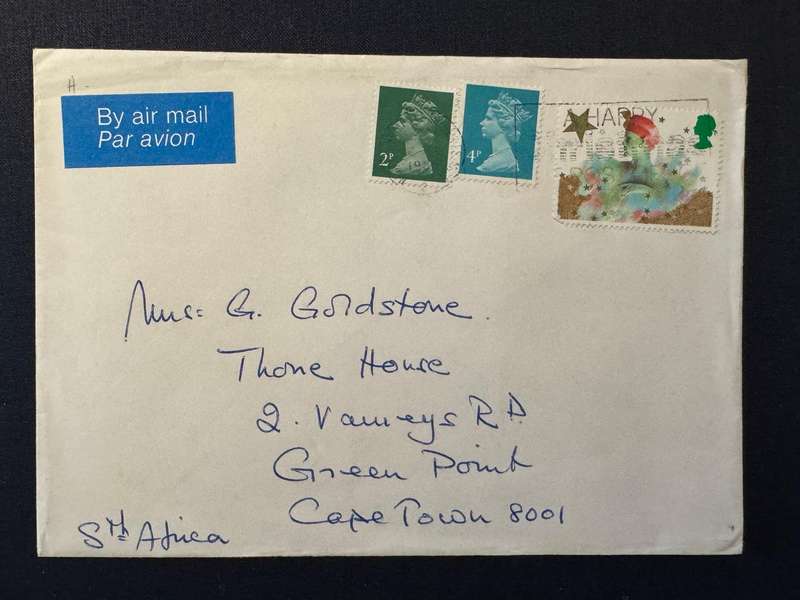 A -
By air mail
Par avion
2P
4P
A HAPPY
Mrs: G. Goldstone.
Thone House
2. Varneys RD
Green Point
Cape Town 8001
Sth Africa